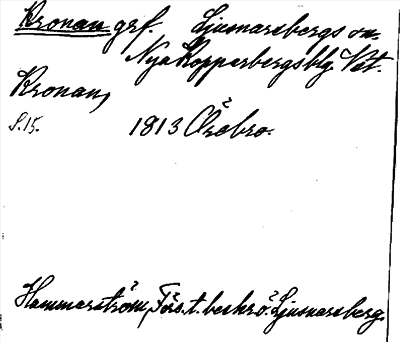 Kronan grf. Ljusnarsbergs sn.
Nya Kopparbergs blg. Vst.
Kronan,
S. 15. 1813 Örebro.
Hammarström, Förs. t. beskr. ö. Ljusnarsberg.